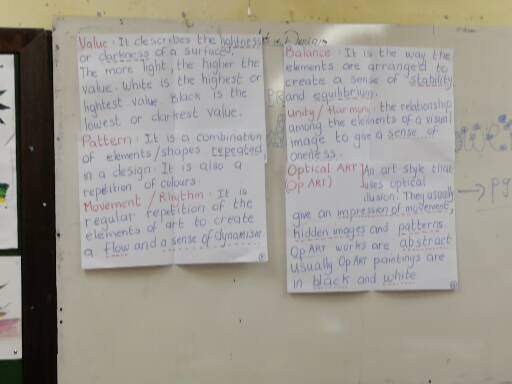 Value: It describes the lightness
or darkness of a surface.
The more light, the higher the
value. White is the highest or
lightest value. Black is the
lowest or darkest value.
Pattern: It is a combination
of elements/shapes repeated
in a design. It is also a
repetition of colours.
Movement / Rhythm: It is
regular repetition of the
elements of art to create
a flow and a sense of dynamism
Design
Balance: It is the way the
elements are arranged to
create a sense of stability
and equilibrium.
Unity/Harmony: the relationship
among the elements of a visual
image to give a sense of
oneness.
Optical ART An art style that
(Op ART) uses optical
illusion. They usually
give an impression of movement,
hidden images and patterns.
Op ART works are abstract
Usually Op ART paintings are
in black and white